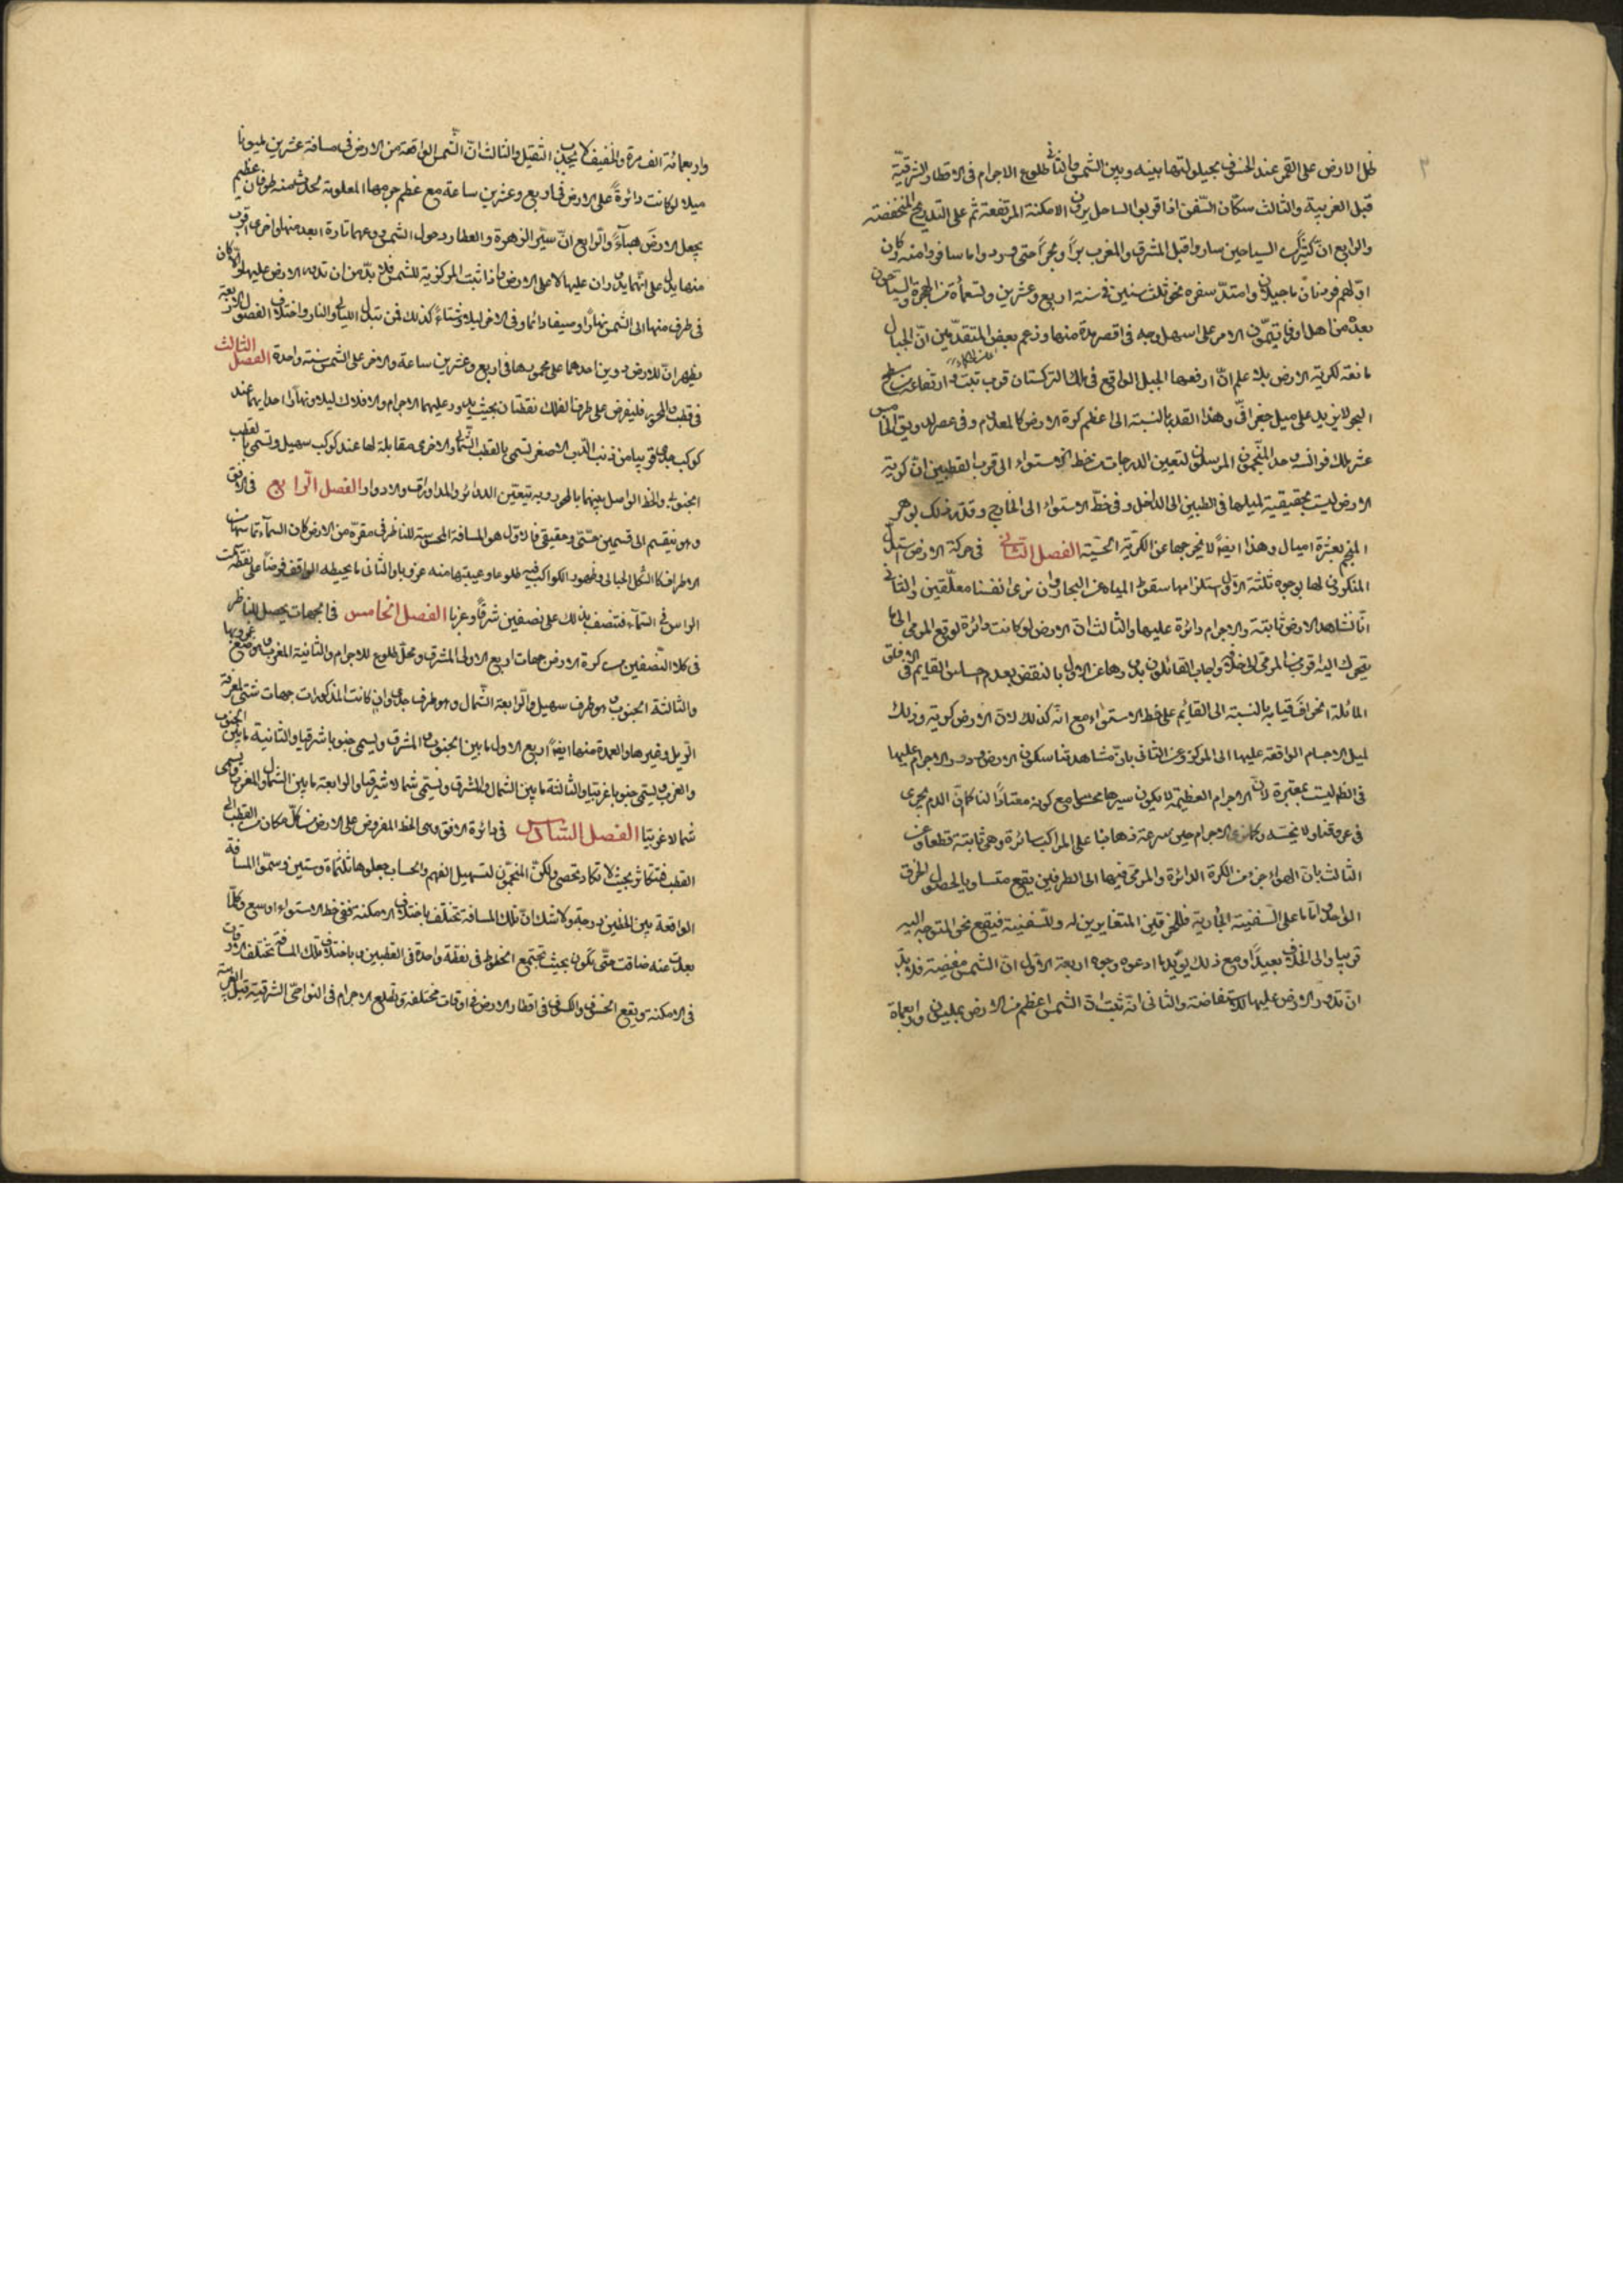 ظل الارض على القمر عند الخسوف بحيلولتها بينه وبين الشمس والثانى طلوع الاجرام فى الاقطار الشرقيّة
قبل الغربية والثالث سكّان السّفن اذا قربوا الساحل يرون الامكنة المرتفعة ثم على التدريج المنخفضة
والرابع انّ كثيرًا من السياحين ساروا قبل المشرق والمغرب برًّا وبحرًا حتى ما سافروا منه وكان
اوّلهم وامتدّ سفره نحو ثلث سنين فى سنة اربع وعشرين وتسعمأة من الهجرة والسياحون
بعده من اهل اوروپا يتمّون الامر على اسهل وجه فى اقصر مدة منها وزعم بعض المتقدّمين انّ الجبال
مانعة لكرية الارض بلا علم انّ ارفعها الجبل الواقع فى ملك التركستان قرب تبّت وارتفاعه من سطح
البحر لا يزيد على ميل جغرافى وهذا القدر بالنسبة الى اعظم كرة الارض كالمعدوم وفى عصر لوئ الخامس
عشر ملك فرانسه وجد المنجّمون المرسلون لتعيين الدرجات من خط الاستواء الى قرب القطبين انّ كرية
الارض ليست بحقيقية لميلها فى القطبين الى الداخل وفى خطّ الاستواء الى الخارج وقدّر ذلك
المنجم بعشرة اميال وهذا ايضًا لا يخرجها عن الكرية الحسّية الفصل الثانى فى حركة الارض استدلّ
المنكرون لها بوجوه ثلثة الاوّل استلزامها سقوط المياه عن البحار وان نرى انفسنا معلّقين والثانى
انّا نشاهد الارض ثابتة والاجرام دائرة عليها والثالث انّ الارض لو كانت دائرة لوقع المرمى الى ما
يتحرك اليه قرب المرمى الى خلافه واجاب القائلون بدورها عن الاول بالنقض بعدم احساس القايم فى الافاق
المائلة انحراف قيامه بالنسبة الى القايم على خط الاستواء مع انّه كذلك لانّ الارض كروية وذلك
لميل الاجسام الواقعة عليها الى المركز وعن الثانى بانّ مشاهدتنا سكون الارض ودور الاجرام عليها
فى الظاهر ليست بمعتبرة لانّ الاجرام العظيمة لا يكون سيرها محسوسا مع كونه معتادًا لنا كما انّ الدم يجرى
فى عروقنا ولا نحسّه وكما نرى الاجرام حين سرعة ذهابنا على المراكب سائرة وهى ثابتة قطعا وعن
الثالث بانّ الهواء جزء من الكرة الدائرة والمرمى فيها الى الطرفين يقع متساويا لحصول الحركة
الواحدة امّا على السّفينة الجارية فللحركتين المتغايرين له وللسّفينة فيقع نحو المتوجه اليه
قريبا والى الخلاف بعيدًا ومع ذلك يؤيّد ما ادعوه وجوه اربعة الاوّل انّ الشمس مفيضة فلا بدّ
ان تدور الارض عليها للاستفاضة والثانى انّه ثبت انّ الشمس اعظم من الارض بمليون واربعمأة
واربعمائة الف مرة والخفيف لا يجذب الثقيل والثالث انّ الشمس الواقعة من الارض فى مسافة عشرين مليونا
ميلا لو كانت دائرةً على الارض فى اربع وعشرين ساعة مع عظم جرمها المعلومة لحدث منه طوفان عظيم
يجعل الارض هباءً والرابع انّ سير الزهرة والعطارد حول الشمس ووقوعهما تارة ابعد منها واخرى اقرب
منها يدل على انّهما يدوران عليها لا على الارض واذا ثبت المركزية للشمس فلا بدّ من ان تدور الارض عليها والّا لكان
فى طرف منها الى الشمس نهارًا وصيفا دائما وفى الاخر ليلا وشتاءً كذلك فمن تبدّل الليالى والنهار واختلاف الفصول الاربعة
يظهر انّ للارض دورين احدهما على محورها فى اربع وعشرين ساعة والاخر على الشمس سنة واحدة الفصل الثالث
فى قطبى المحور فليفرض على طرفى الفلك نقطتان بحيث يدور عليهما الاجرام والافلاك ليلا ونهارًا احدايهما عند
كوكب جدى قريبا من ذنب الدّب الاصغر تسمى بالقطب الشّمالى والاخرى مقابلة لها عند كوكب سهيل وتسمى بالقطب
الجنوبى والخط الواصل بينهما بالمحور وبه يتعيّن الدوائر والمدارات والادوار الفصل الرابع فى الافق
وهو ينقسم الى قسمين حسّى وحقيقى فالاوّل هو المسافة المحسوسة للناظر فى مقرّه من الارض كأن السمآء تماسها من
الاطراف كالشكل الحبالى وظهور الكواكب فيه طلوعا وغيبتها منه غروبا والثانى ما يحيطه الواقف فرضًا على نقطة سمت
الراس فى السمآء فتنصف بذلك على نصفين شرقًا وغربا الفصل الخامس فى الجهات يحصل للناظر
فى كلا النّصفين من كرة الارض جهات اربع الاولى المشرق ومحلّ طلوع للاجرام والثانية المغرب وموضع غروبها
والثالثة الجنوب وهو طرف سهيل والرابعة الشّمال وهو طرف جدى وان كانت المذكورات جهات شتى لمعرفة
الريح وغيرها والعمدة منها ايضًا اربع الاولى ما بين الجنوب والمشرق ويسمى جنوبا شرقيا والثانية ما بين الجنوب
والغرب ويسمى جنوبا غربيّا والثالثة ما بين الشمال والمشرق ويسمّى شمالا شرقيا والرابعة ما بين الشمال والمغرب ويسمى
شمالا غربيّا الفصل السّادس فى دائرة الافق وهى الخط المفروض على الارض من كلّ مكان من القطب الى
القطب فتكاثر بحيث لا تكاد تحصى ولكنّ المنجّمون لتسهيل الفهم والحساب جعلوها ثلثمأة وستين وسمّوا المسافة
الواقعة بين الخطين درجة ولا شك انّ تلك المسافة تختلف باختلاف الامكنة ففى خط الاستواء اوسع وكلّما
بعدت عنه ضاقت حتّى تكون بحيث تجتمع الخطوط فى نقطة واحدة فى القطبين وباختلاف تلك المسافة تختلف الاوقات
فى الامكنة ويقع الخسوف والكسوف فى اقطار الارض فى اوقات مختلفة وتطلع الاجرام فى النواحى الشرقية قبل الغربية